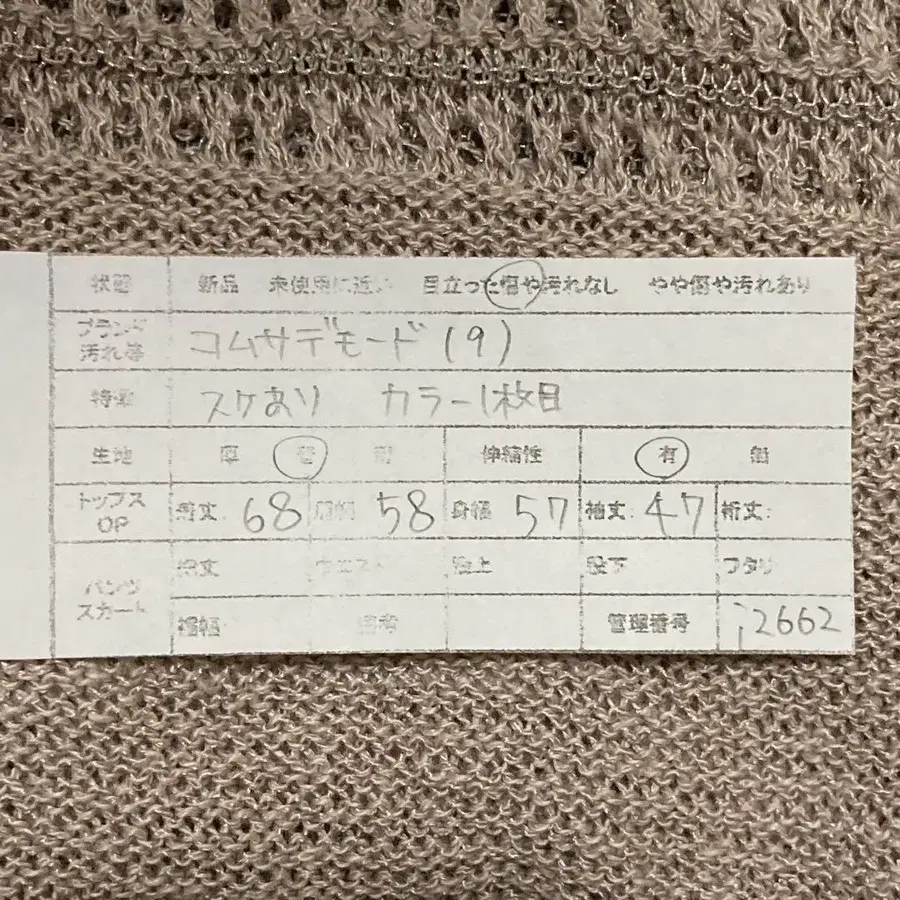 状態 新品 未使用に近い 目立った傷や汚れなし やや傷や汚れあり
ブランド 汚れ等 コムサデモード (9)
特徴 スケあり カラー1枚目
生地 厚 普 伸縮性 有 無
トップス OP 着丈: 68 肩幅 58 身幅 57 袖丈: 47 裄丈:
パンツ スカート 総丈 ウエスト 股上 股下 ワタリ
裾幅 備考 管理番号 i2662